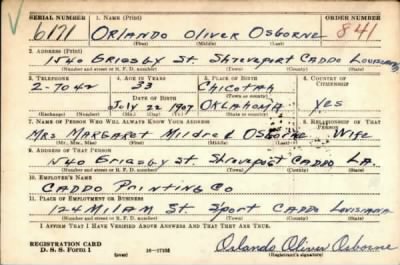 SERIAL NUMBER 1. NAME (Print) ORDER NUMBER
6171 ORLANDO OLIVER OSBORNE 841
(First) (Middle) (Last)
2. ADDRESS (Print)
1540 GRIGSBY ST. SHREVEPORT CADDO LOUISIANA
(Number and street or R. F. D. number) (Town) (County) (State)
3. TELEPHONE 4. AGE IN YEARS 5. PLACE OF BIRTH 6. COUNTRY OF CITIZENSHIP
2-7042 33 CHICOTAH
(Town or county)
DATE OF BIRTH
July 22 1907 OKLAHOMA Yes
(Exchange) (Number) (Mo.) (Day) (Yr.) (State or country)
7. NAME OF PERSON WHO WILL ALWAYS KNOW YOUR ADDRESS 8. RELATIONSHIP OF THAT PERSON
MRS MARGARET MILDRED OSBORNE Wife
(Mr., Mrs., Miss) (First) (Middle) (Last)
9. ADDRESS OF THAT PERSON
1540 Grigsby St. Shreveport CADDO LA.
(Number and street or R. F. D. number) (Town) (County) (State)
10. EMPLOYER'S NAME
CADDO PRINTING CO
11. PLACE OF EMPLOYMENT OR BUSINESS
124 MILAM St. Sport CADDO LOUISIANA
(Number and street or R. F. D. number) (Town) (County) (State)
I AFFIRM THAT I HAVE VERIFIED ABOVE ANSWERS AND THAT THEY ARE TRUE.
REGISTRATION CARD
D. S. S. Form 1 (over) Orlando Oliver Osborne
(Registrant's signature)